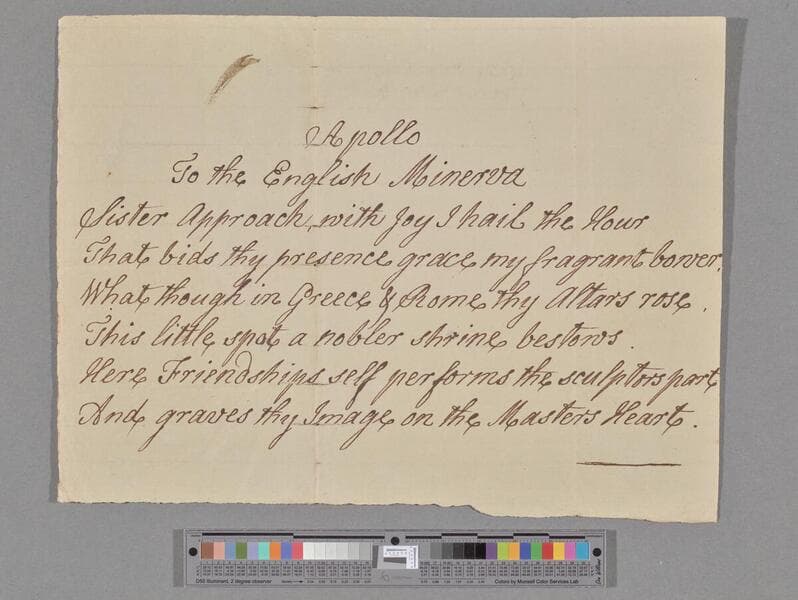 Apollo
To the English Minerva
Sister Approach, with Joy I hail the Hour
That bids thy presence grace my fragrant bower.
What though in Greece & Rome thy Altars rose.
This little spot a nobler shrine bestows.
Here Friendships self performs the sculptors part
And graves thy Image on the Masters Heart.
D50 Illuminant, 2 degree observer
Colors by Munsell Color Services Lab